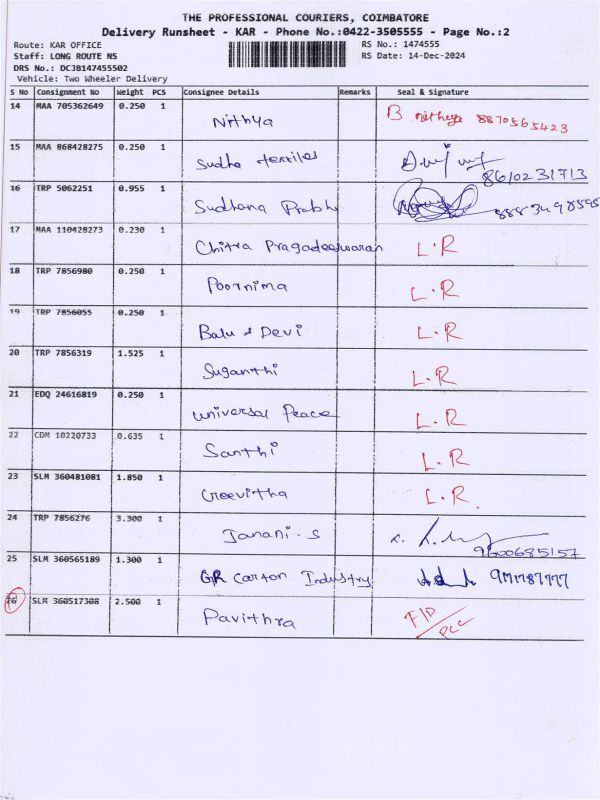 THE PROFESSIONAL COURIERS, COIMBATORE
Delivery Runsheet - KAR - Phone No.:0422-3505555 - Page No.:2
Route: KAR OFFICE RS No.: 1474555
Staff: LONG ROUTE NS RS Date: 14-Dec-2024
DRS No.: DC3B147455502
Vehicle: Two Wheeler Delivery
S No Consignment No Weight PCS Consignee Details Remarks Seal & Signature
14 MAA 705362649 0.250 1 Nithya B Nithya 8870565423
15 MAA 868428275 0.250 1 Sudha textiles 8610231713
16 TRP 5062251 0.955 1 Sudhana Prabhu 8883498595
17 MAA 110428273 0.230 1 Chitra Pragadeeswaran L.R
18 TRP 7856980 0.250 1 Poornima L.R
19 TRP 7856055 0.250 1 Balu & Devi L.R
20 TRP 7856319 1.525 1 Suganthi L.R
21 EDQ 24616819 0.250 1 universal Peace L.R
22 CDM 10220733 0.635 1 Santhi L.R
23 SLM 360481081 1.850 1 Creevitha L.R.
24 TRP 7856276 3.300 1 Janani.S 9600685157
25 SLM 360565189 1.300 1 GR Carton Industry
26 SLM 360517308 2.500 1 Pavithra